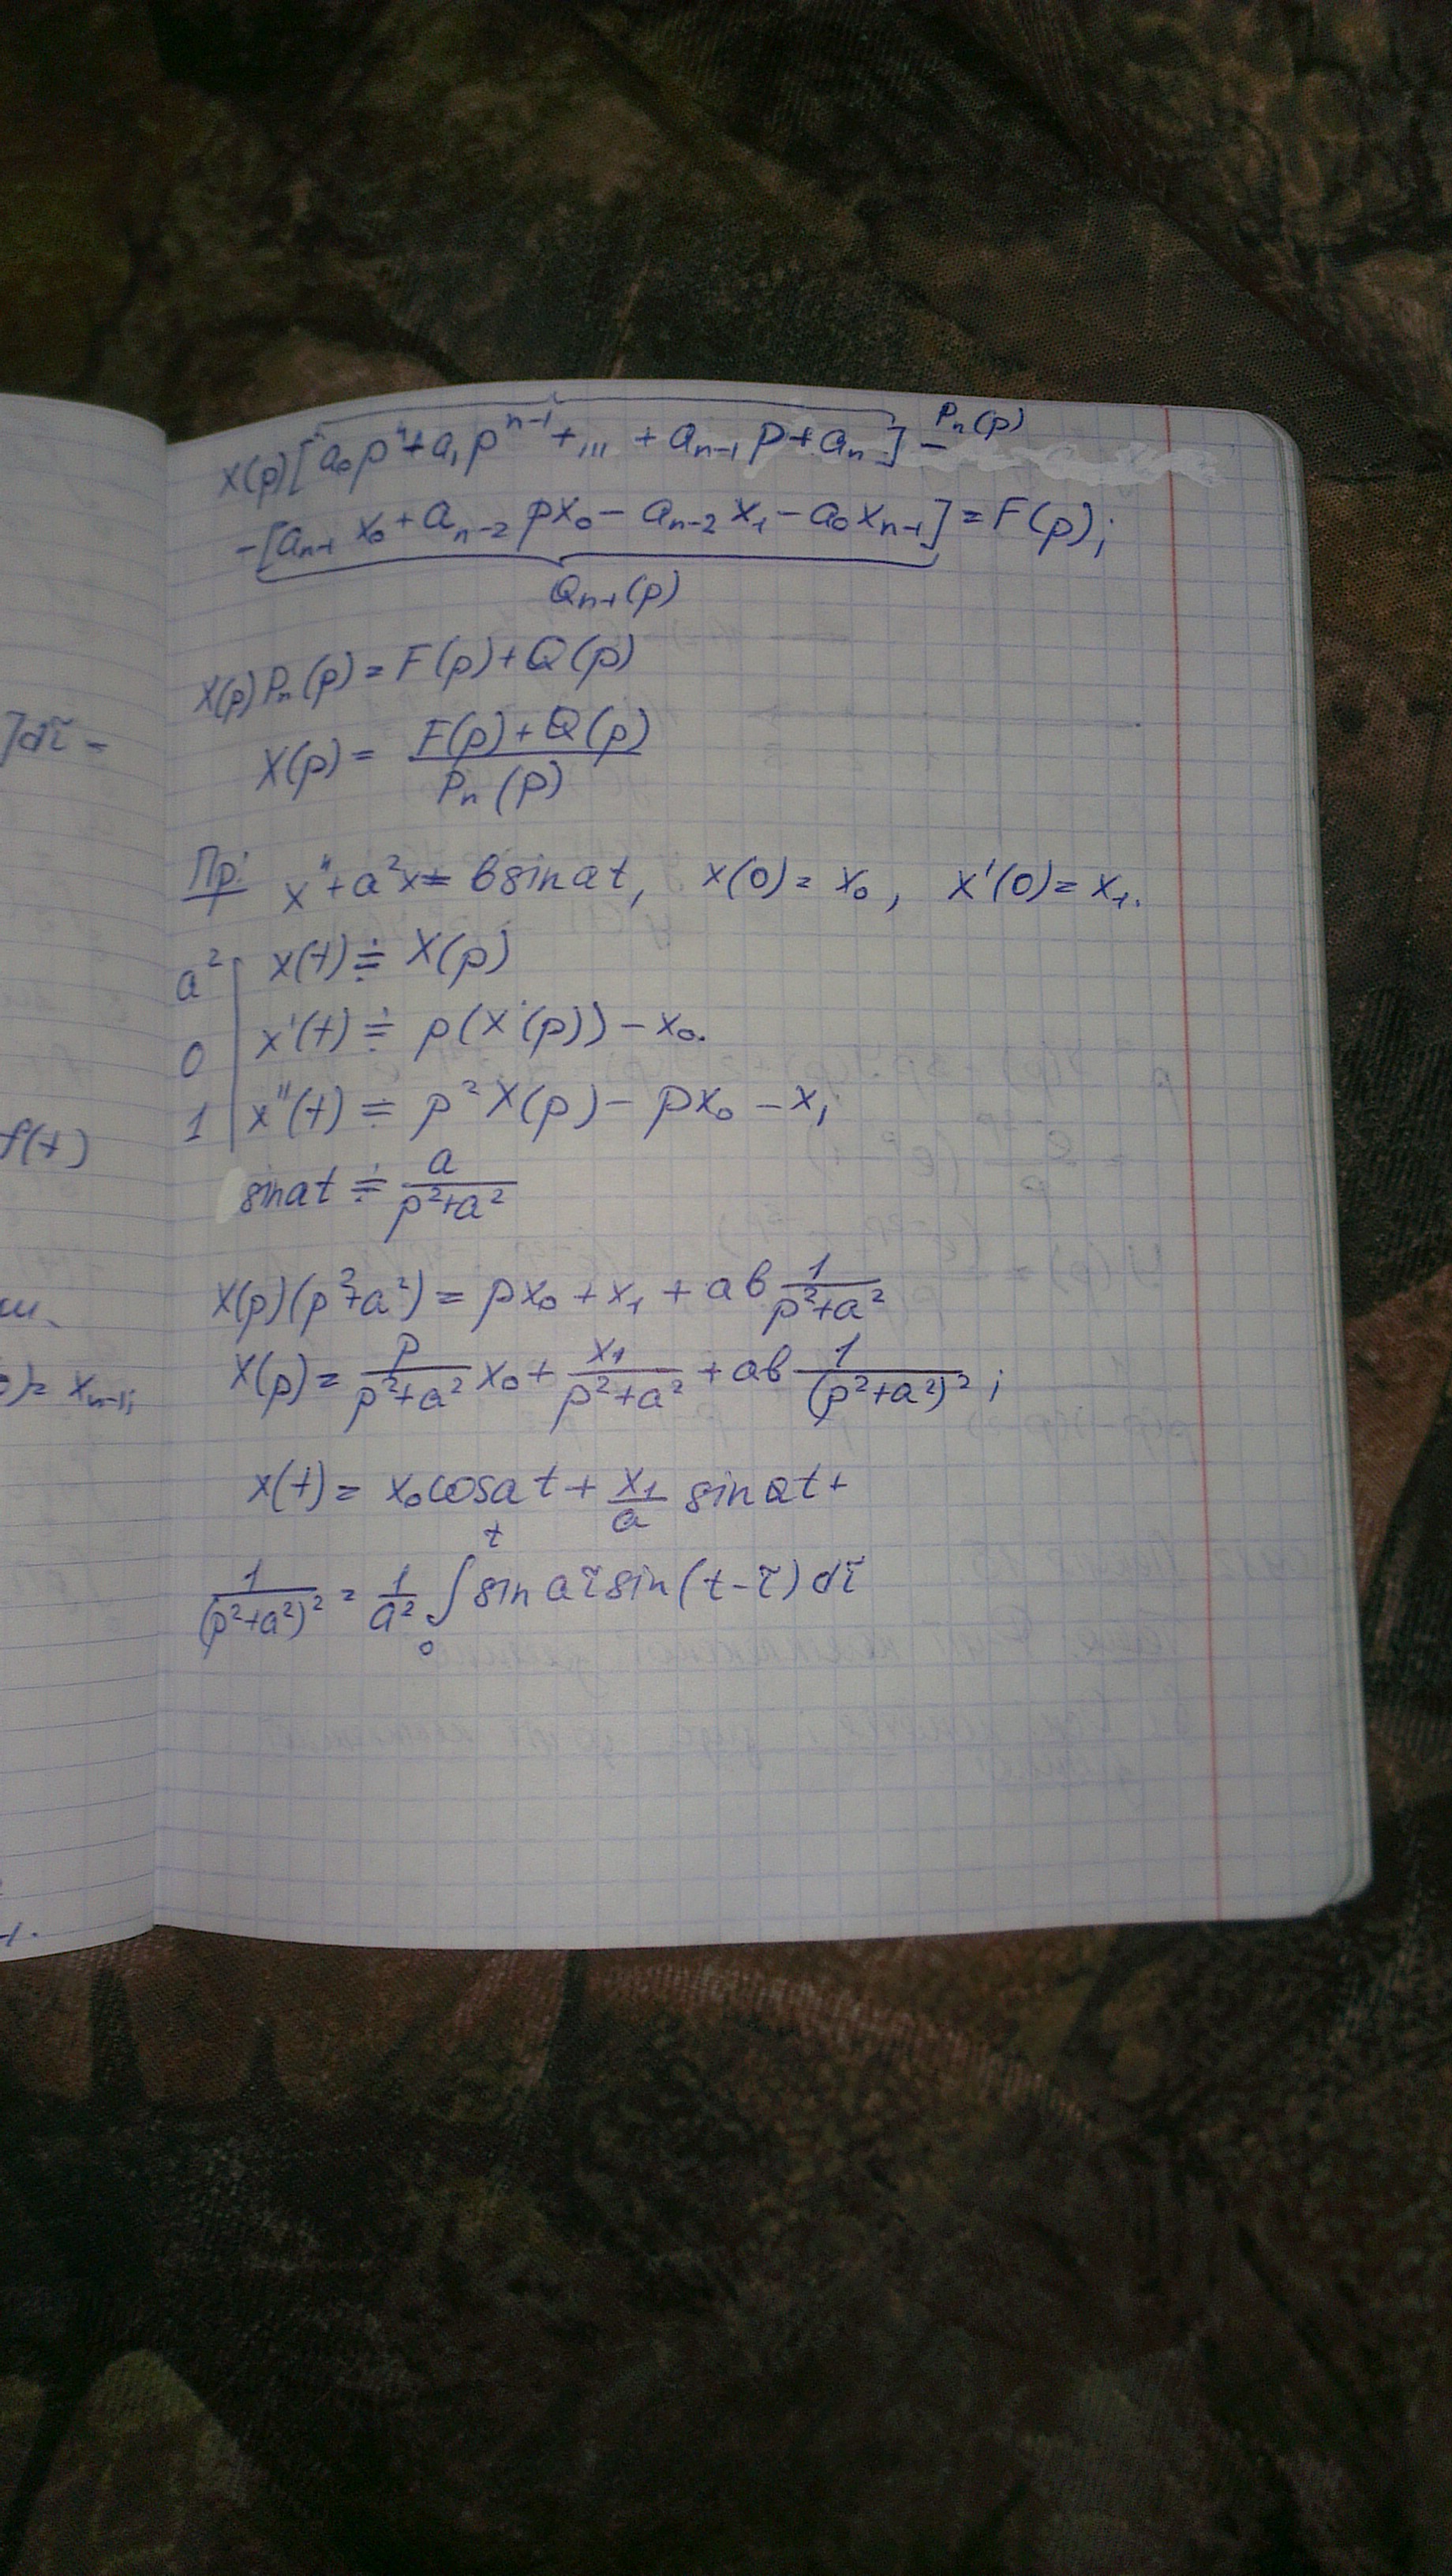 ]dτ̃ -
f(t)
)= xₙ₋₁;
Pₙ(p)
X(p)[a₀pⁿ+a₁pⁿ⁻¹+...+aₙ₋₁p+aₙ] -
-[aₙ₋₁x₀+aₙ₋₂px₀-aₙ₋₂x₁-a₀xₙ₋₁]=F(p);
Qₙ₋₁(p)
X(p)Pₙ(p)=F(p)+Q(p)
X(p)= (F(p)+Q(p))/(Pₙ(p))
Пр: x"+a²x= вsinat, x(0)=x₀, x'(0)=x₁.
a² | x(t) ≑ X(p)
0 | x'(t) ≑ p(X(p))-x₀.
1 | x"(t) ≑ p²X(p)-px₀-x₁
sinat ≑ a/(p²+a²)
X(p)(p²+a²)=px₀+x₁+aв 1/(p²+a²)
X(p)= p/(p²+a²) x₀+ x₁/(p²+a²) +aв 1/(p²+a²)²;
x(t)= x₀cosat+ x₁/a sinat+
1/(p²+a²)² = 1/a² ∫₀ᵗ sinaτ̃ sin(t-τ̃)dτ̃